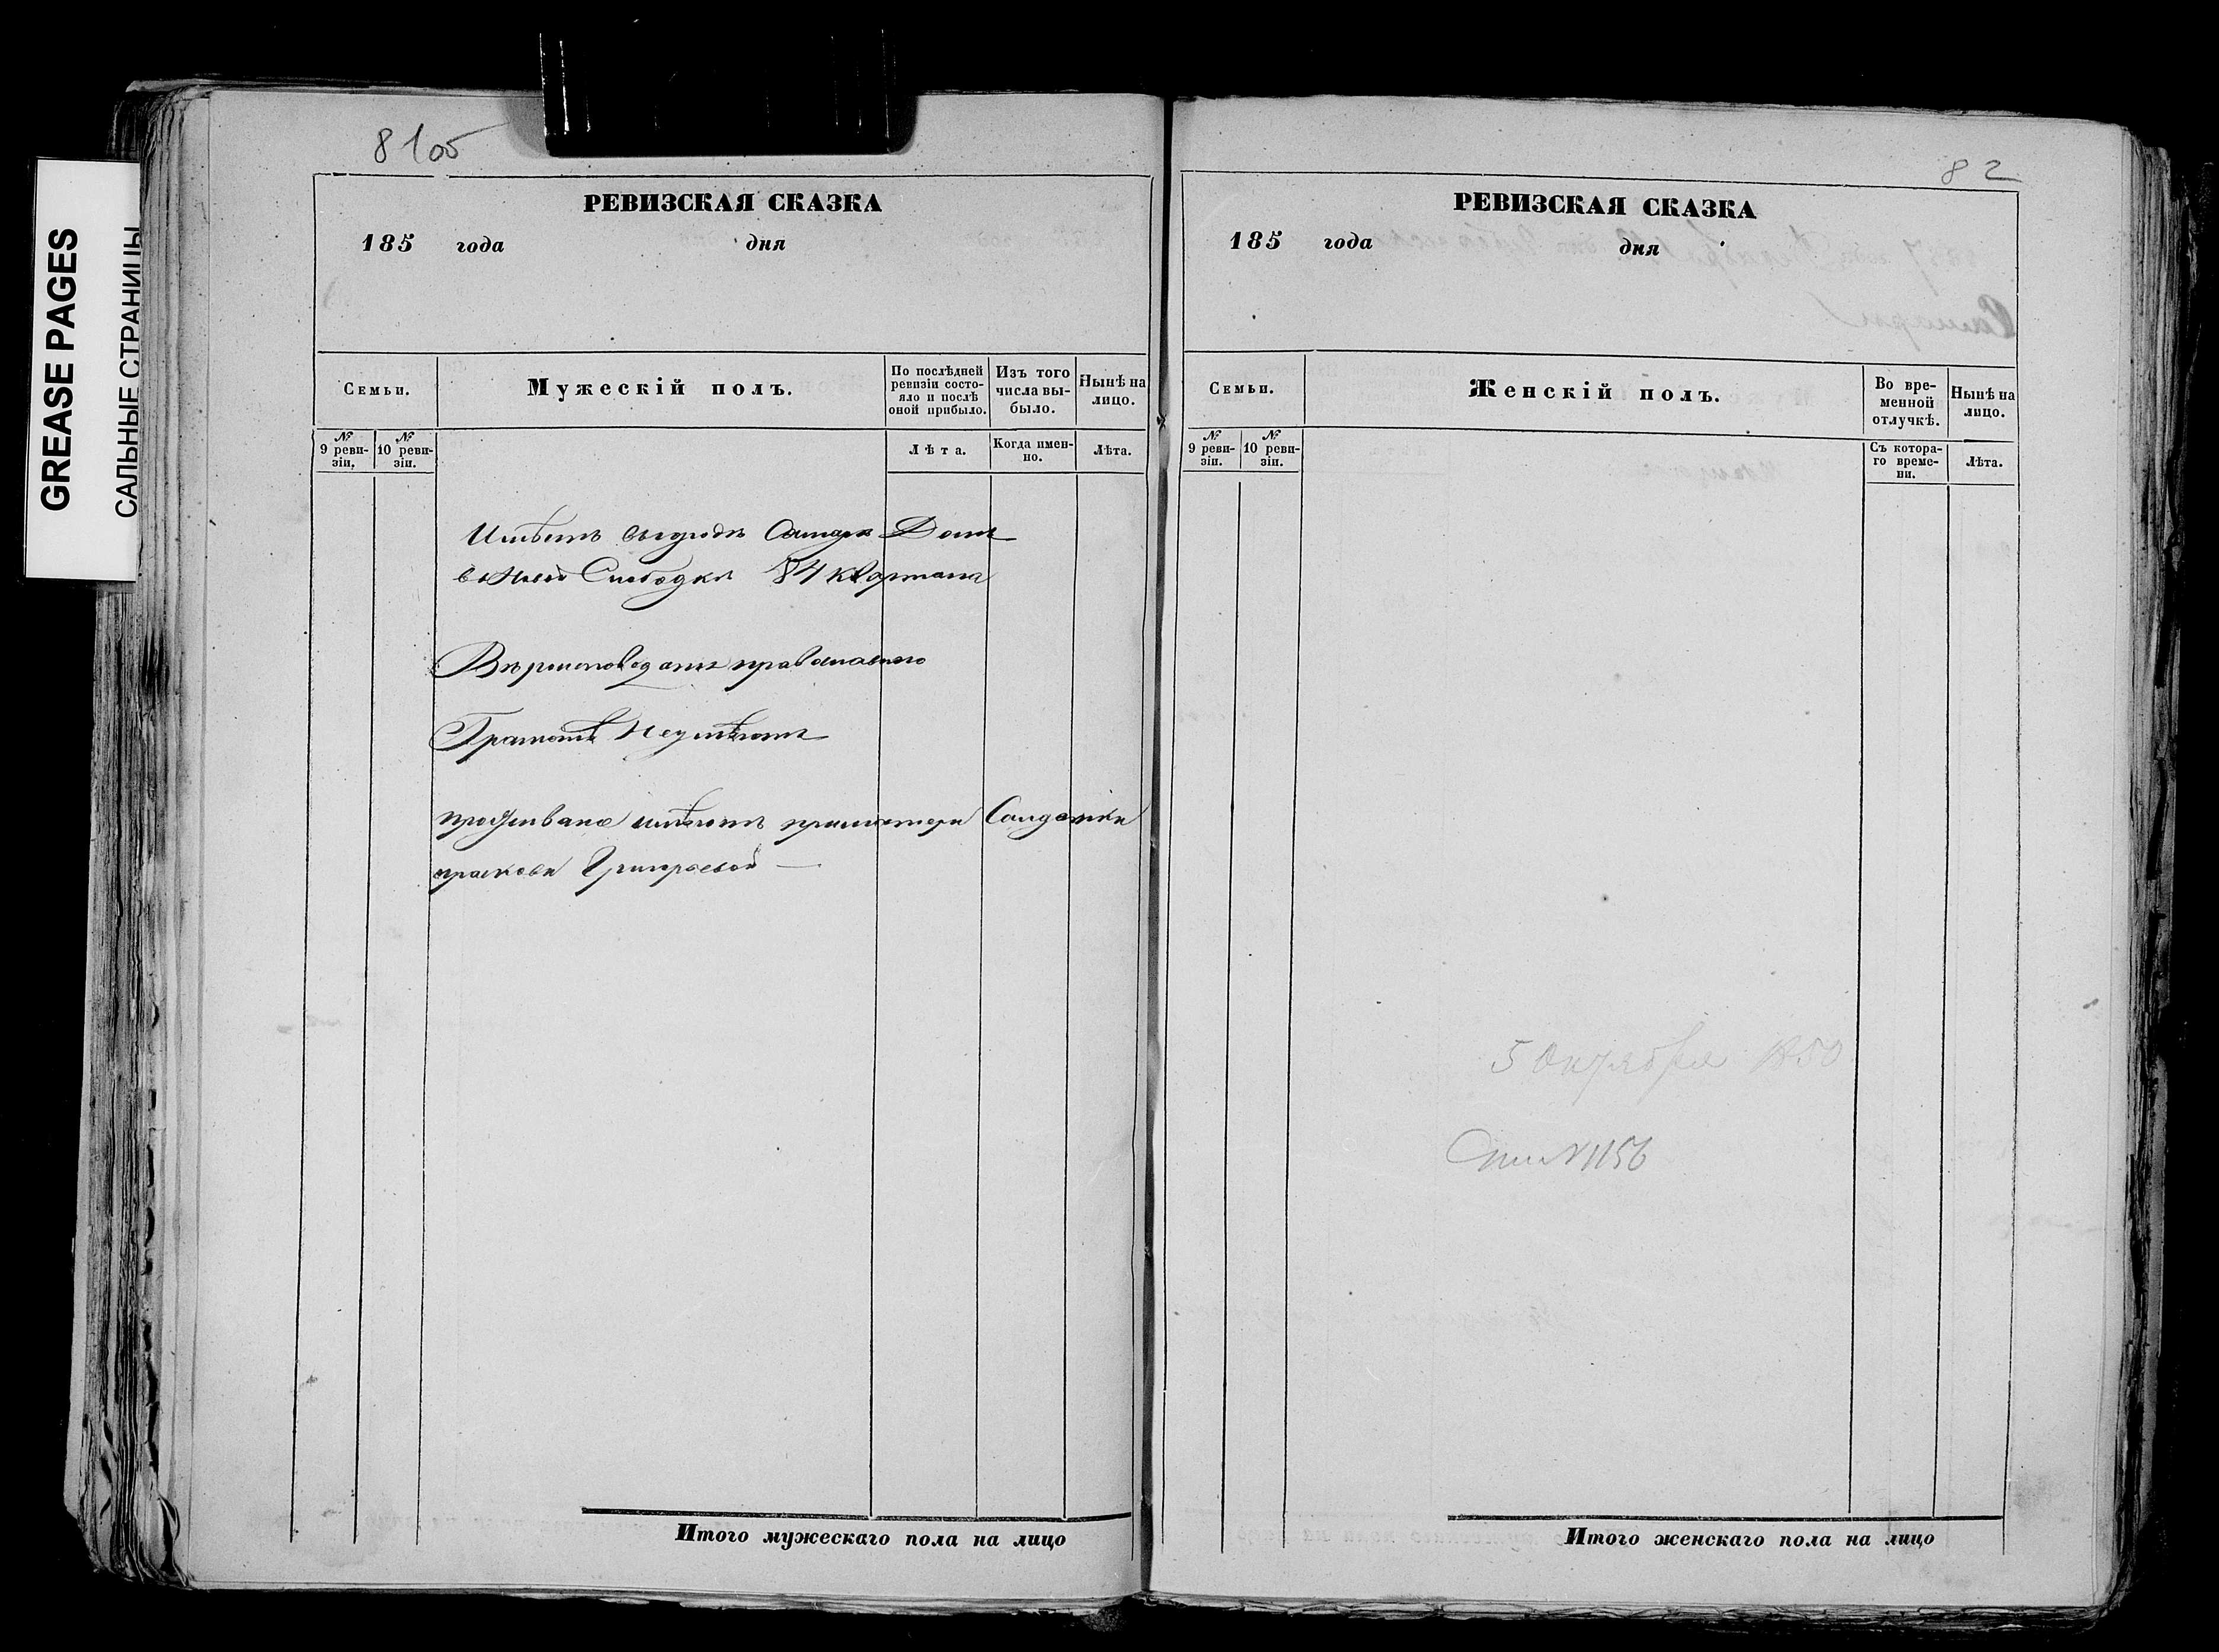 GREASE PAGES
САЛЬНЫЕ СТРАНИЦЫ
81об
РЕВИЗСКАЯ СКАЗКА
185 года дня
Семьи.
Мужескій полъ.
По послѣдней ревизіи состояло и послѣ оной прибыло.
Изъ того числа выбыло.
Нынѣ на лицо.
№ 9 ревизіи.
№ 10 ревизіи.
Лѣта.
Когда именно.
Лѣта.
Имѣетъ въ городѣ Самаре Домъ
въ Слободки 84 квартала
Вѣроисповеданія православного
Грамотѣ Неумѣютъ
проживаніе имѣютъ при матери Солдатки
прасковьи Григорьевой —
Итого мужескаго пола на лицо
82
РЕВИЗСКАЯ СКАЗКА
185 года дня
Семьи.
Женскій полъ.
Во временной отлучкѣ.
Нынѣ на лицо.
№ 9 ревизіи.
№ 10 ревизіи.
Съ котораго времени.
Лѣта.
5 Октября 1850
№ 1156
Итого женскаго пола на лицо